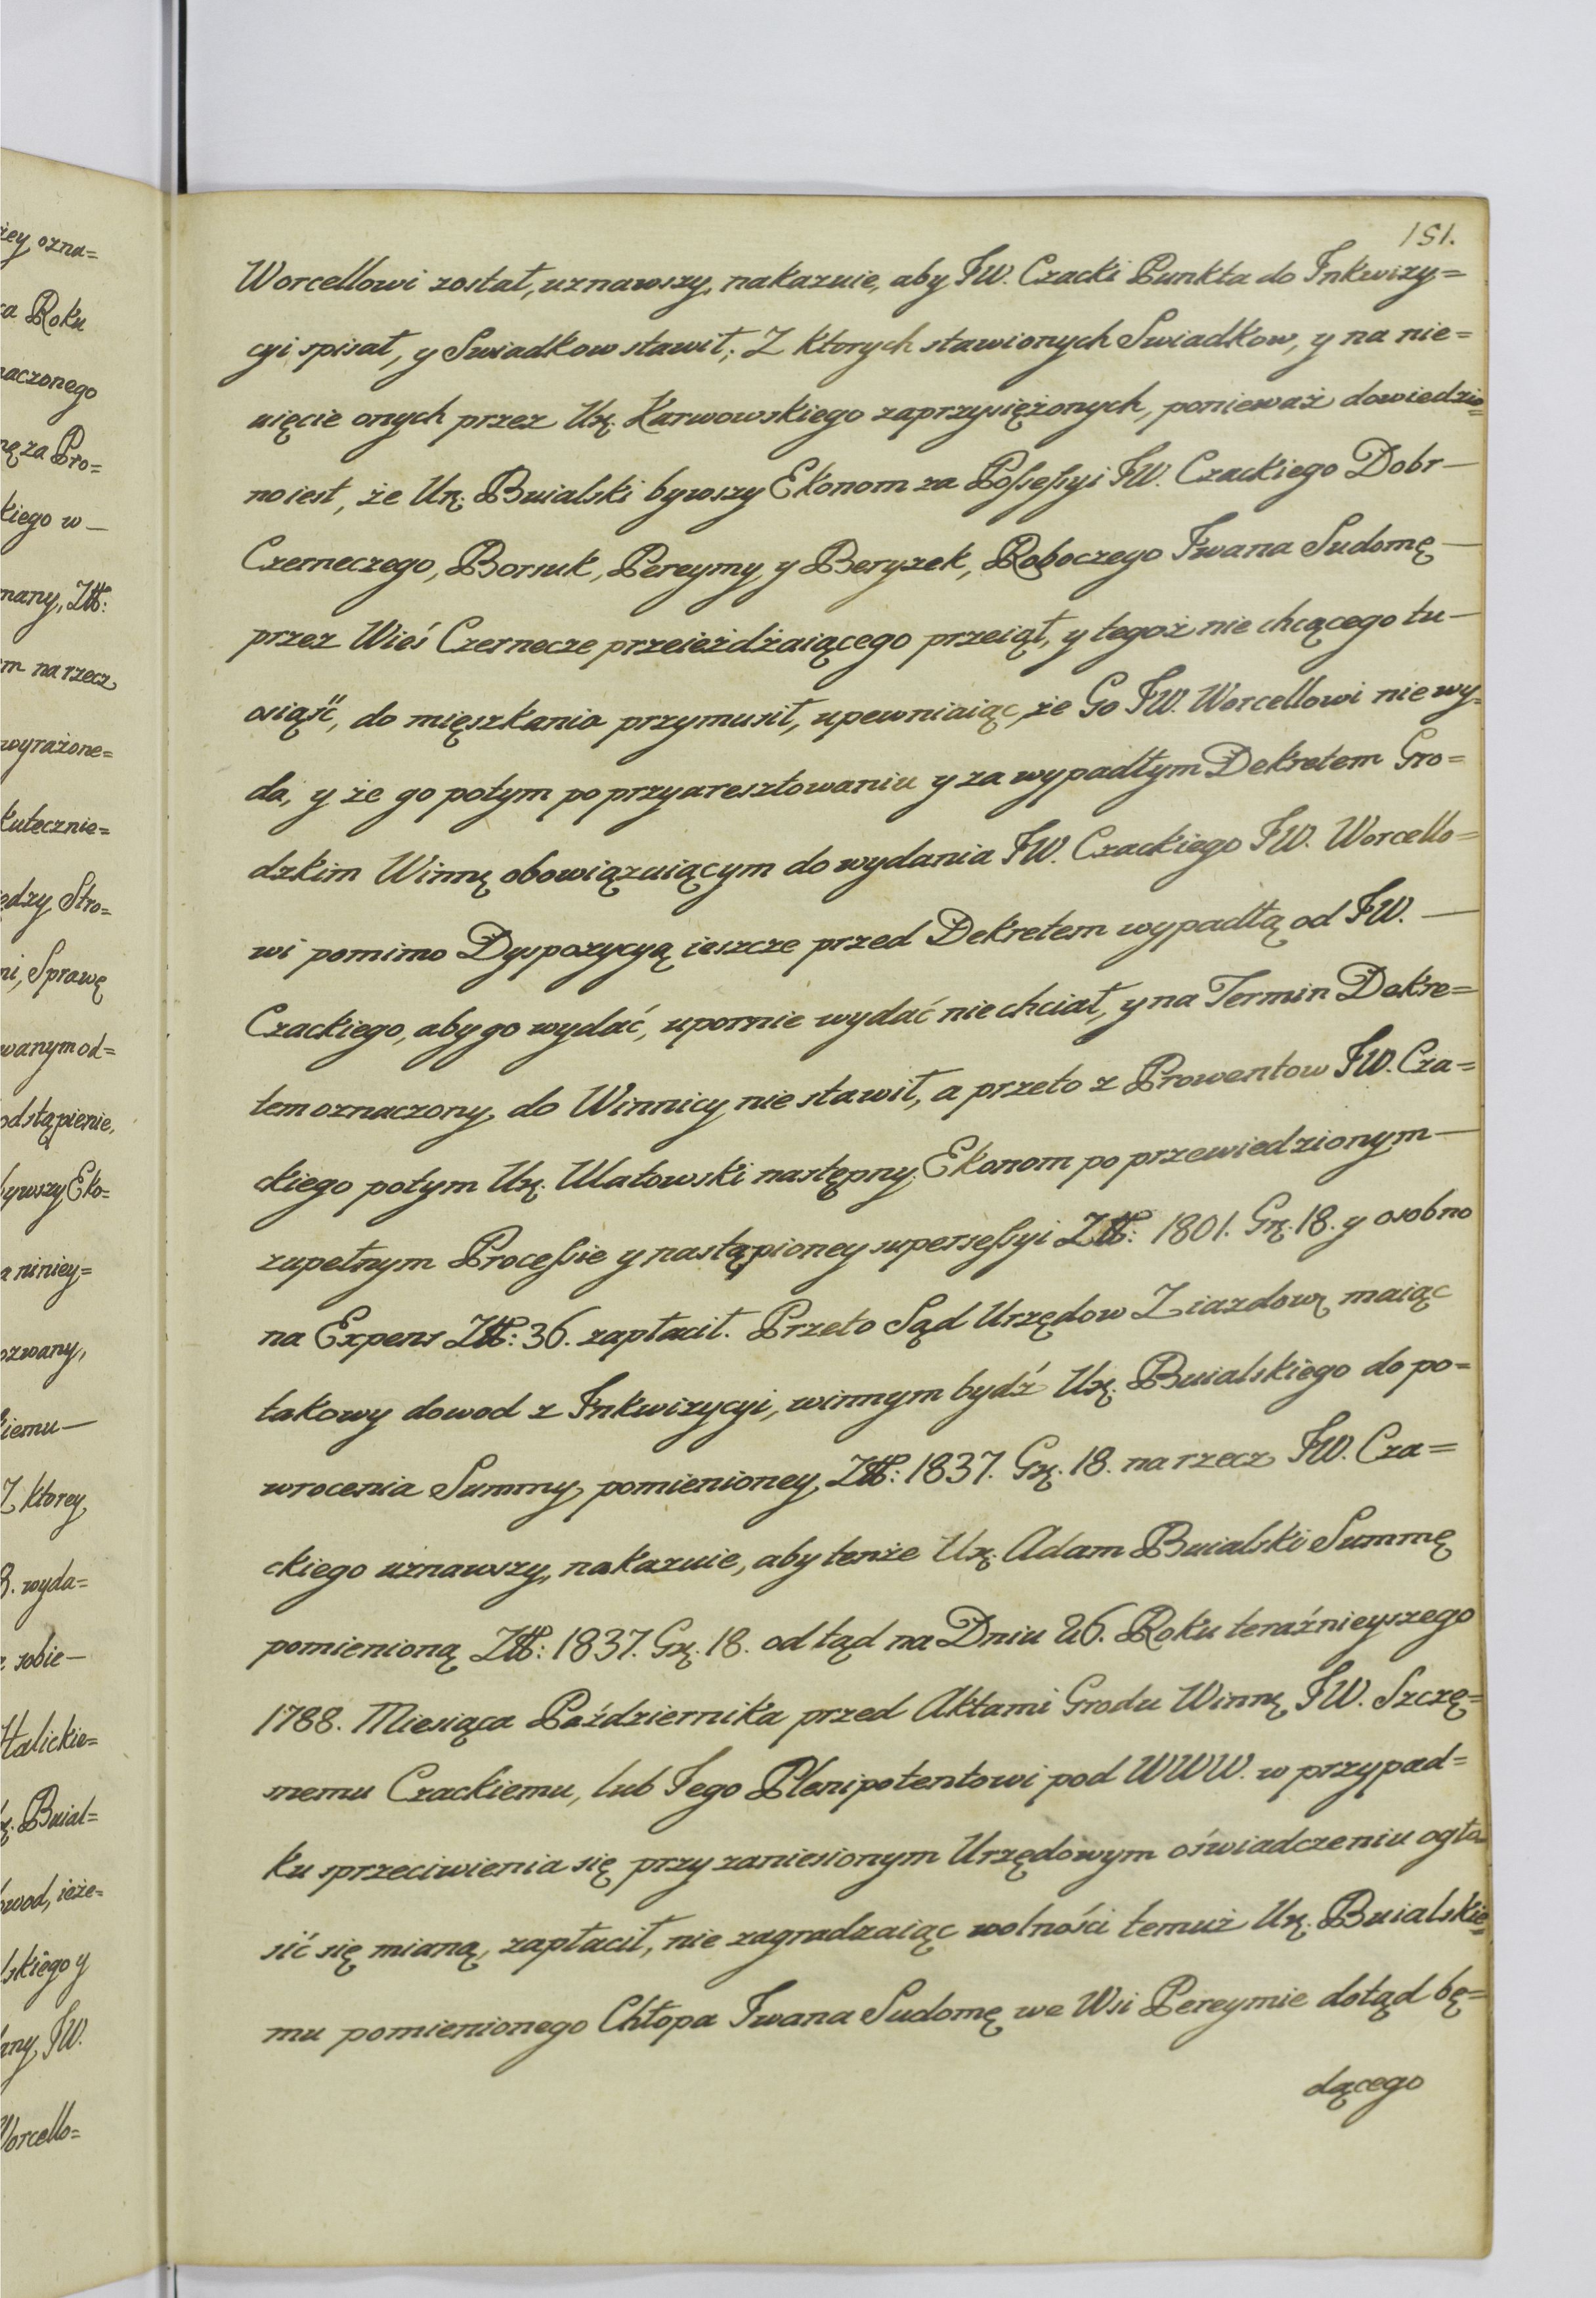 151.
Worcellowi został, uznawszy, nakazuie, aby JW. Czacki Punkta do Inkwizy=
cyi spisał, y Swiadkow stawił; Z ktorych stawionych Swiadkow, y na nie=
uięcie onych przez Ur̃. Karwowskiego zaprzysiężonych, ponieważ dowiedzio=
no iest, że Ur̃. Buialski bywszy Ekonom za Poſseſsyi JW. Czackiego Dobr—
Czerneczego, Borsuk, Pereymy y Beryzek, Roboczego Iwana Sudomę—
przez Wieś Czernecze przeieżdżaiącego przeiął, y tegoż nie chcącego tu—
osiąść, do mięszkania przymusił, upewniaiąc, że Go JW. Worcellowi nie wy=
da, y że go potym po przyaresztowaniu y za wypadłym Dekretem Gro=
dzkim Winnę obowiązuiącym do wydania JW. Czackiego JW. Worcello=
wi pomimo Dyspozycyą ieszcze przed Dekretem wypadłą od JW.—
Czackiego, aby go wydać, upornie wydać nie chciał, y na Termin Dekre=
tem oznaczony do Winnicy nie stawił, a przeto z Prowentow JW. Cza=
ckiego potym Ur̃. Ulatowski następny Ekonom po przewiedzionym—
zupełnym Proceſsie y nastąpioney superseſsyi Złł: 1801. Gr̃. 18. y osobno
na Expens Złł: 36. zapłacił. Przeto Sąd Urzędow Ziazdowy maiąc
takowy dowod z Inkwizycyi, winnym bydź Ur̃. Buialskiego do po=
wrocenia Summy pomienioney Złł: 1837. Gr̃. 18. na rzecz JW. Cza=
ckiego uznawszy, nakazuie, aby tenże Ur̃. Adam Buialski Summę
pomienioną Złł: 1837. Gr̃. 18. od tąd na Dniu 26. Roku teraźnieyszego
1788. Miesiąca Października przed Aktami Grodu Winnę JW. Szczę=
snemu Czackiemu, lub Jego Plenipotentowi pod WWW. w przypad=
ku sprzeciwienia się przy zaniesionym Urzędowym oświadczeniu ogło=
sić się mianą, zapłacił, nie zagradzaiąc wolności temuż Ur̃. Buialskie=
mu pomienionego Chłopa Iwana Sudomę we Wsi Pereymie dotąd bę=
dącego